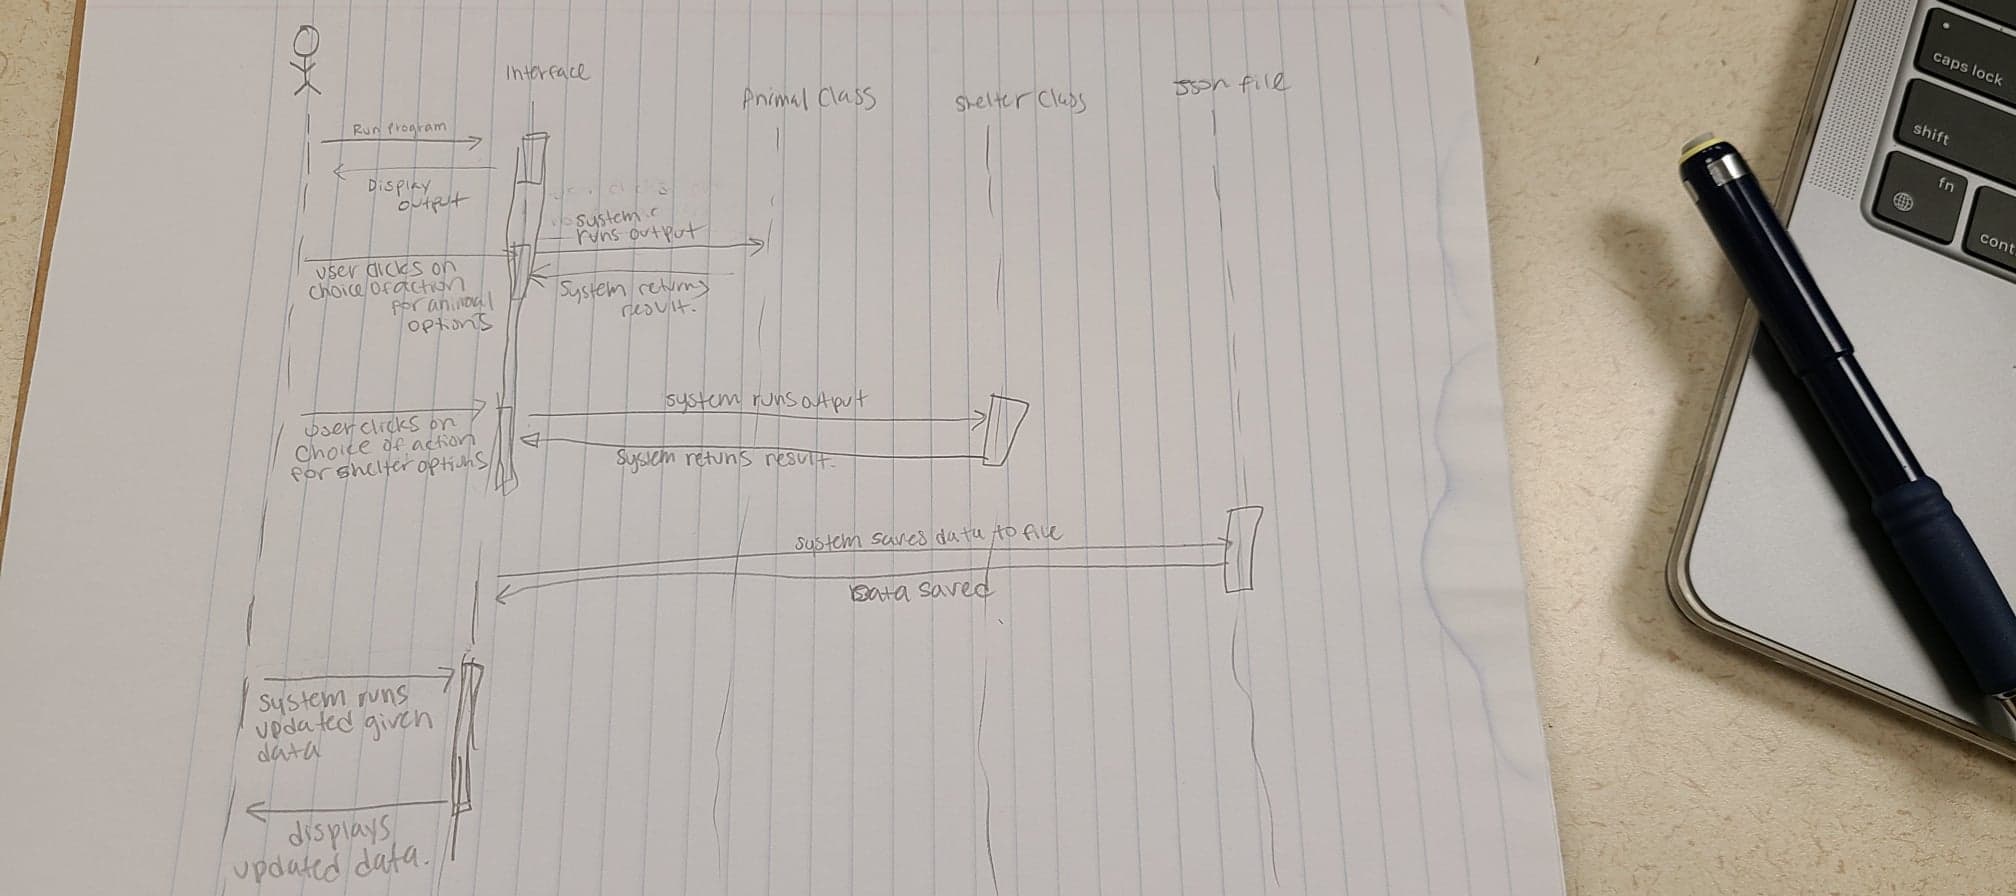 Interface
Animal Class
Shelter Class
Json file
Run Program
Display
output
system
runs output
user clicks on
choice of action
for animal
options
System returns
result.
system runs output
user clicks on
choice of action
for shelter options
System retuns result.
system saves data to file
Data saved
system runs
updated given
data
displays
updated data.
caps lock
shift
fn
cont